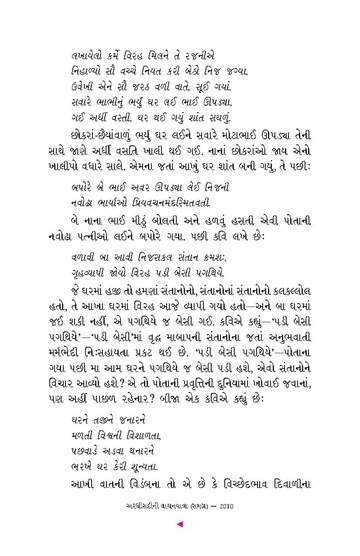 લખાયેલો કર્મે વિરહ મિલને તે રજનીએ
નિહાળ્યો સૌ વચ્ચે નિયત કરી બેઠો નિજ જગ્યા,
ઉવેખી એને સૌ જરઠ વળી વાતે, સૂઈ ગયાં.
સવારે ભાભીનું ભર્યું ઘર લઈ ભાઈ ઊપડ્યા,
ગઈ અર્ધી વસ્તી, ઘર થઈ ગયું શાંત સઘળું.
છોકરાં-છૈયાંવાળું ભર્યું ઘર લઈને સવારે મોટાભાઈ ઊપડ્યા તેની
સાથે જાણે અર્ધી વસતિ ખાલી થઈ ગઈ. નાનાં છોકરાંઓ જાય એનો
ખાલીપો વધારે સાલે. એમના જતાં આખું ઘર શાંત બની ગયું, તે પછીઃ
બપોરે બે ભાઈ અવર ઊપડ્યા લેઈ નિજની
નવોઢા ભાર્યાઓ પ્રિયવચનમંદસ્મિતવતી.
બે નાના ભાઈ મીઠું બોલતી અને હળવું હસતી એવી પોતાની
નવોઢા પત્નીઓ લઈને બપોરે ગયા. પછી કવિ લખે છેઃ
વળાવી બા આવી નિજસકલ સંતાન ક્રમશઃ,
ગૃહવ્યાપી જોયો વિરહ પડી બેસી પગથિયે.
જે ઘરમાં હજી તો હમણાં સંતાનોનો, સંતાનોનાં સંતાનોનો કલકલ્લોલ
હતો, તે આખા ઘરમાં વિરહ આજે વ્યાપી ગયો હતો—અને બા ઘરમાં
જઈ શકી નહીં, એ પગથિયે જ બેસી ગઈ. કવિએ કહ્યું—‘પડી બેસી
પગથિયે’—‘પડી બેસી’માં વૃદ્ધ માબાપની સંતાનોના જતાં અનુભવાતી
મર્મભેદી નિઃસહાયતા પ્રકટ થઈ છે. ‘પડી બેસી પગથિયે’—પોતાના
ગયા પછી મા આમ ઘરને પગથિયે જ બેસી પડી હશે, એવો સંતાનોને
વિચાર આવ્યો હશે? એ તો પોતાની પ્રવૃત્તિની દુનિયામાં ખોવાઈ જવાનાં,
પણ અહીં પાછળ રહેનાર? બીજા એક કવિએ કહ્યું છેઃ
ઘરને તજીને જનારને
મળતી વિશ્વની વિશાળતા,
પછવાડે અડવા થનારને
ભરખે ઘર કેરી શૂન્યતા.
આખી વાતની વિડંબના તો એ છે કે વિચ્છેદભાવ દિવાળીના
અરધીસદીની વાચનયાત્રા (સમગ્ર) — 2010